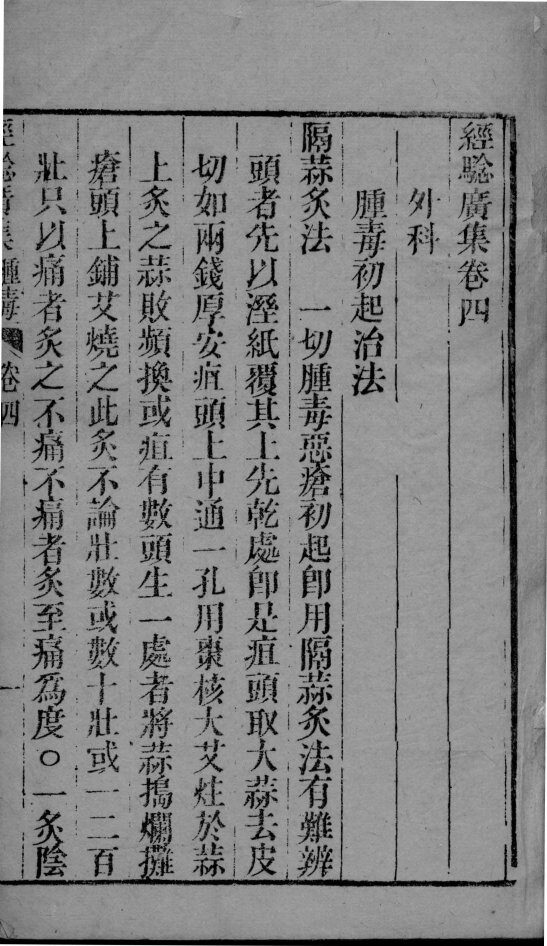 經驗廣集卷四
外科
腫毒初起治法
隔蒜灸法　一切腫毒惡瘡初起卽用隔蒜灸法有難辨
頭者先以溼紙覆其上先乾處卽是疽頭取大蒜去皮
切如兩錢厚安疽頭上中通一孔用棗核大艾炷於蒜
上灸之蒜敗頻換或疽有數頭生一處者將蒜搗爛攤
瘡頭上鋪艾燒之此灸不論壯數或數十壯或一二百
壯只以痛者灸之不痛不痛者灸至痛爲度○一灸陰
經驗廣集　腫毒　卷四　一